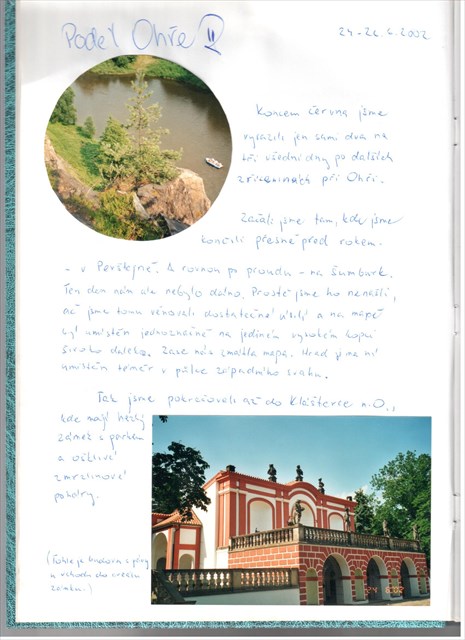 Podél Ohře II
24-26.6.2002
Koncem června jsme
vyrazili jen sami dva na
tři všední dny po dalších
zříceninách při Ohři.
Začali jsme tam, kde jsme
končili přesně před rokem -
- v Perštejně. A rovnou po proudu - na Šumburk.
Ten den nám ale nebylo dáno. Prostě jsme ho nenašli,
ač jsme tomu věnovali dostatečné úsilí a na mapě
byl umístěn jednoznačně na jediném vysokém kopci
široko daleko. Zase nás zmátla mapa. Hrad
umístěn téměř v půlce západního svahu.
Tak jsme pokračovali až do Klášterce n.O.,
kde mají hezký
zámek s parkem
a ošklivé
zmrzlinové
poháry.
(Tohle je budova s
u vchodu do
zámku.)
24 6 02